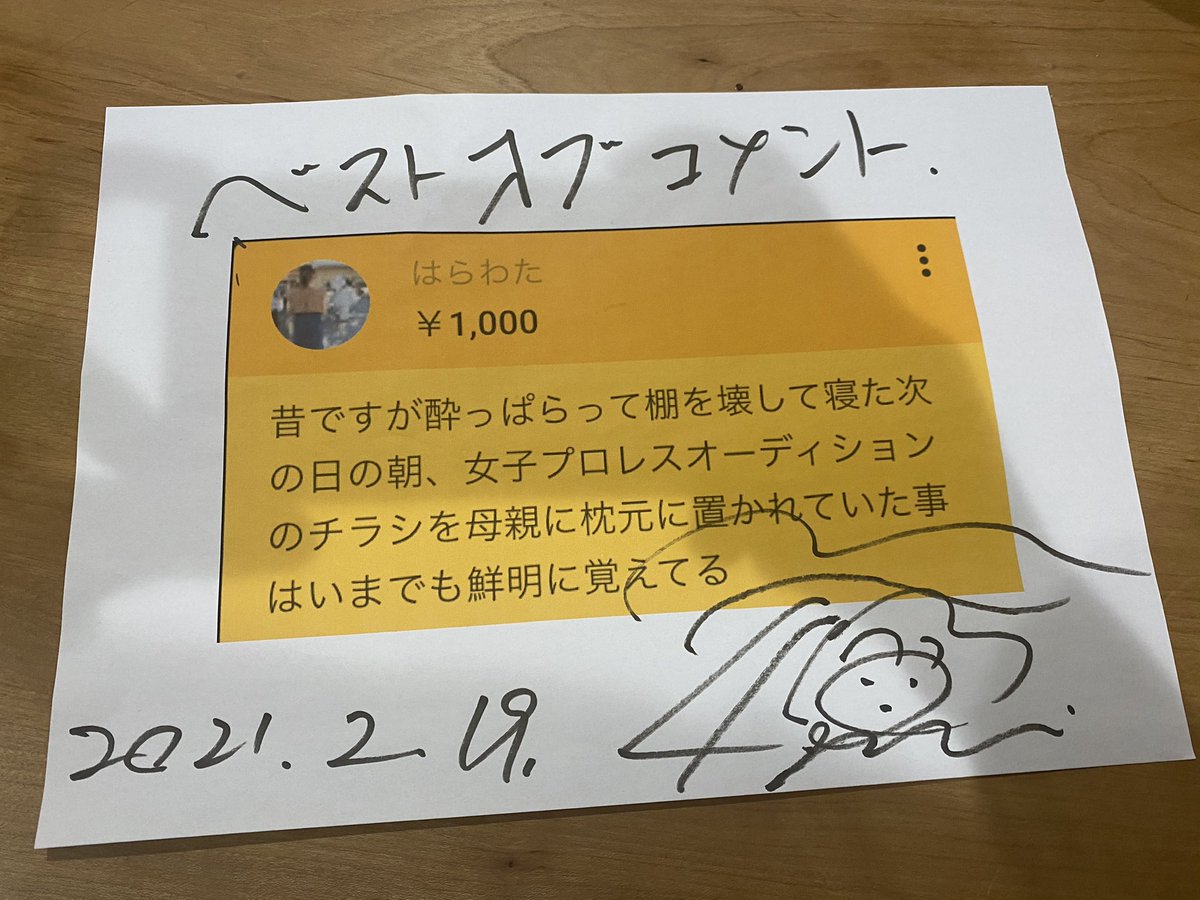 ベストオブコメント.
はらわた
￥1,000
昔ですが酔っぱらって棚を壊して寝た次
の日の朝、女子プロレスオーディション
のチラシを母親に枕元に置かれていた事
はいまでも鮮明に覚えてる
2021.2.19.